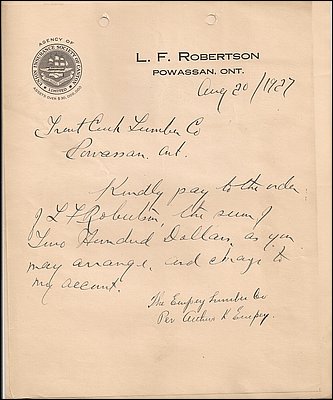 AGENCY OF
UNION INSURANCE SOCIETY OF CANTON
LIMITED
ASSETS OVER $30,000,000
L. F. ROBERTSON
POWASSAN, ONT.
Aug 20/1927
Trout Creek Lumber Co
Powassan, Ont.
Kindly pay to the order
of L F Robertson, the sum of
Two Hundred Dollars, as you
may arrange, and charge to
my account.
The Empey Lumber Co
Per Arthur K Empey.